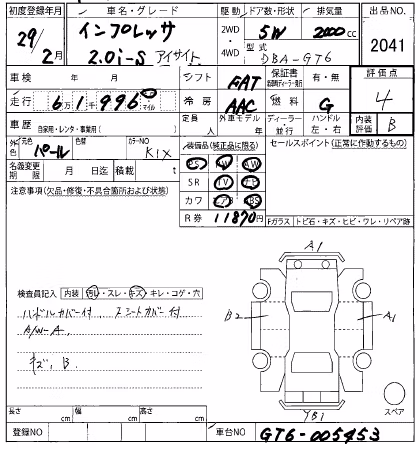 初度登録年月 車名・グレード 駆動 ドア数・形状 排気量 出品NO.
29年 2月 インプレッサ 2.0i-S アイサイト 2WD 4WD 5W 2000cc 2041
型式 DBA-GT6
車検 年 月 シフト FAT 保証書 有・無 評価点 4
走行 6万1千996 マイル 冷房 AAC 燃料 G
車歴 自家用・レンタ・事業用( ) 定員 人 外車モデル 年 ディーラー・並行 ハンドル 左・右 内装評価 B
外色 元色 パール 色替 カラーNO K1X
装備品(純正品に限る) セールスポイント(正常に作動するもの)
名義変更期限 月 日迄 積載 t
PS AW
SR TV ナビ
カワ エアB ABS
R券 11870円
注意事項(欠品・修復・不具合箇所および状態)
Fガラス トビ石・キズ・ヒビ・ワレ・リペア跡
A1
検査員記入 内装 汚レ・スレ・キズ・キレ・コゲ・穴
ハンドルカバー付 シートカバー付
A/W-A
キズ、B
B2 A1
YB1
スペア
長さ cm 幅 cm 高さ cm
登録NO 車台NO GT6-005453